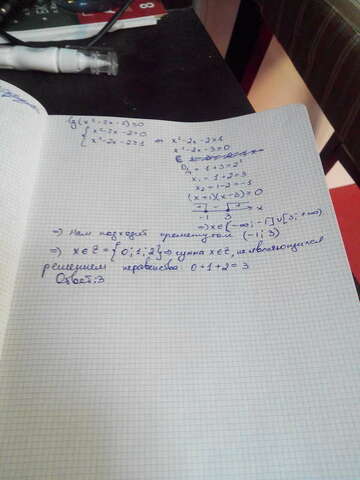 lg(x²-2x-2)≥0
{ x²-2x-2>0
x²-2x-2≥1 ⇔ x²-2x-2≥1
x²-2x-3≥0
= 1+3=2²
x₁ = 1+2=3
x₂ = 1-2=-1
(x+1)(x-3)≥0
+ - + x
-1 3
⇒ x∈(-∞; -1]∪[3; +∞)
⇒ Нам подходит промежуток (-1; 3)
⇒ x∈Z = {0; 1; 2} ⇒ сумма x∈Z, не являющихся
решением неравенства: 0+1+2=3
Ответ: 3